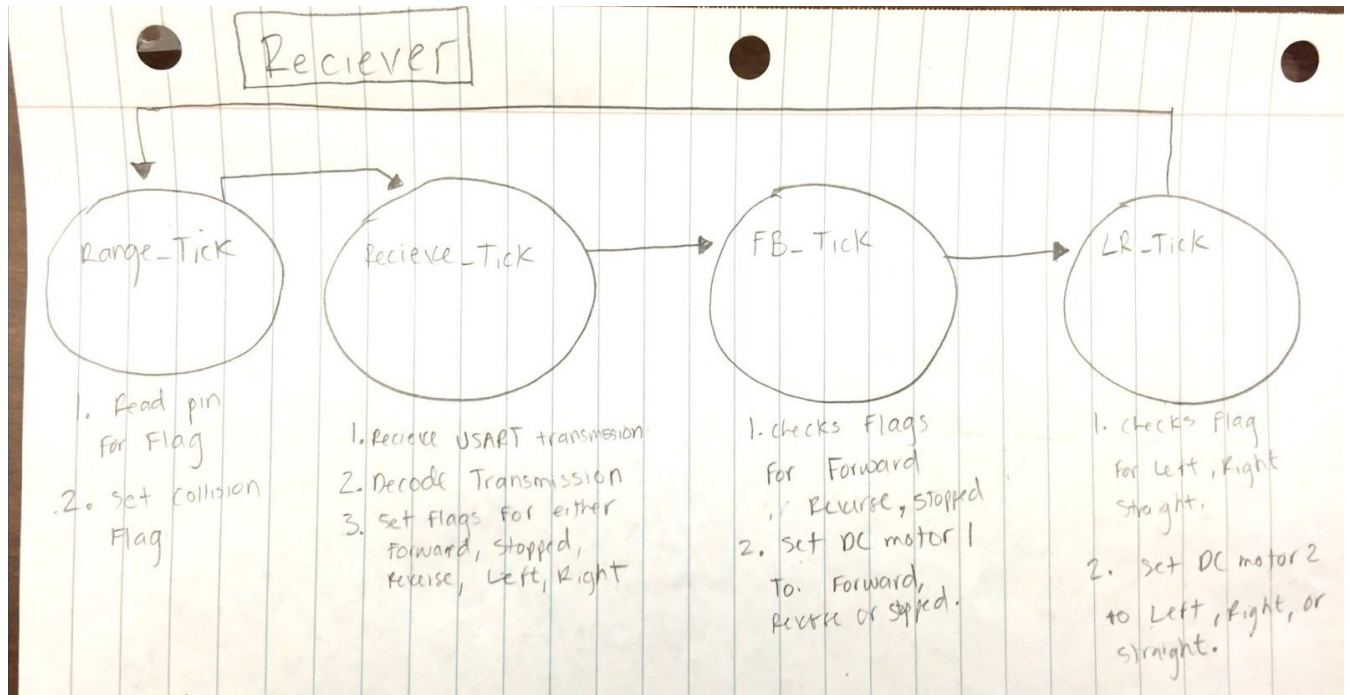 Reciever
Range_Tick
1. Read pin
for Flag
2. Set Collision
Flag
Recieve_Tick
1. Recieve USART transmission
2. Decode Transmission
3. Set flags for either
Forward, Stopped,
Reverse, Left, Right
FB_Tick
1. Checks Flags
For Forward
, Reverse, Stopped
2. Set DC motor 1
To. Forward,
Reverse or stopped.
LR_Tick
1. Checks Flag
for Left, Right
Straight.
2. Set DC motor 2
to Left, Right, or
straight.